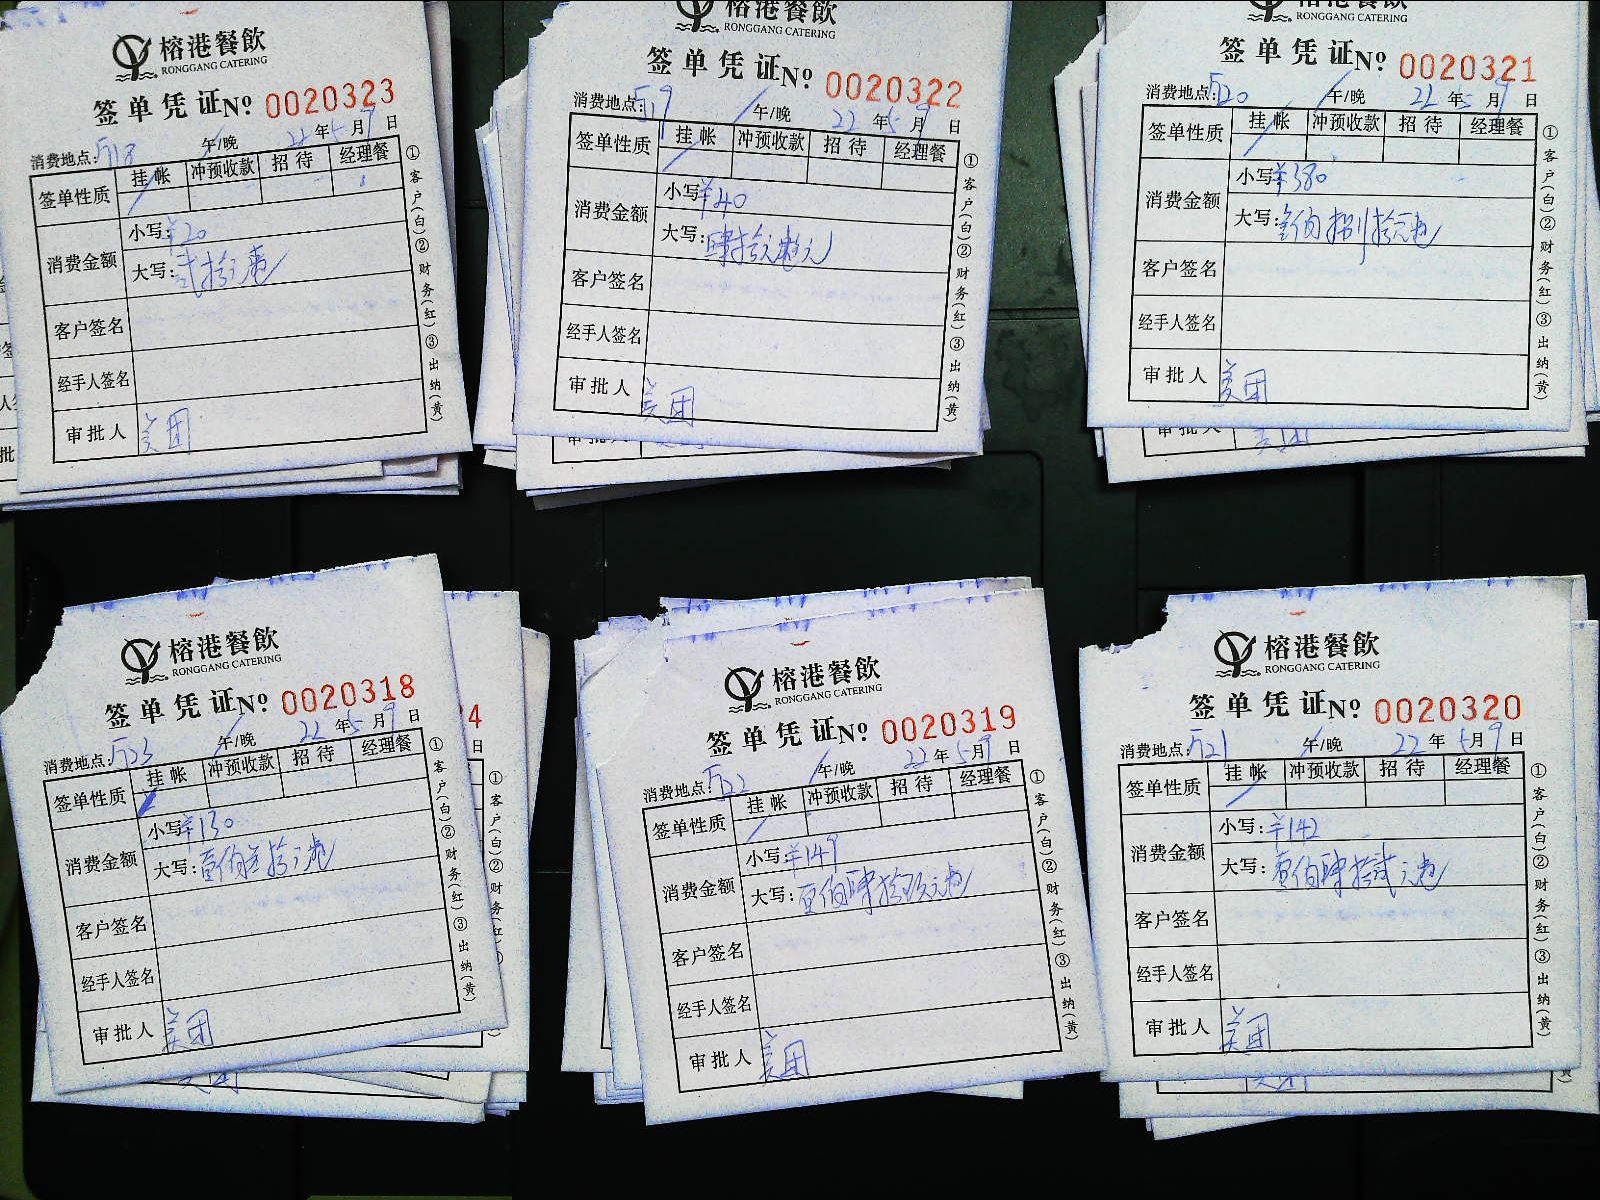 榕港餐飲
RONGGANG CATERING
签单凭证№ 0020323
消费地点: 午/晚 22年5月9日
签单性质 挂帐 冲预收款 招待 经理餐
消费金额 小写:¥20
大写:贰拾元整
客户签名
经手人签名
审批人 美团
①客户(白)②财务(红)③出纳(黄)
榕港餐飲
RONGGANG CATERING
签单凭证№ 0020322
消费地点: 午/晚 22年5月9日
签单性质 挂帐 冲预收款 招待 经理餐
消费金额 小写:¥40
大写:肆拾元整
客户签名
经手人签名
审批人 美团
①客户(白)②财务(红)③出纳(黄)
审批人
RONGGANG CATERING
签单凭证№ 0020321
消费地点: 午/晚 22年5月9日
签单性质 挂帐 冲预收款 招待 经理餐
消费金额 小写:¥380
大写:叁佰捌拾元整
客户签名
经手人签名
审批人 美团
①客户(白)②财务(红)③出纳(黄)
审批人
榕港餐飲
RONGGANG CATERING
签单凭证№ 0020318
消费地点: 午/晚 22年5月9日
签单性质 挂帐 冲预收款 招待 经理餐
消费金额 小写:¥130
大写:壹佰叁拾元整
客户签名
经手人签名
审批人 美团
①客户(白)②财务(红)③出纳(黄)
4
日
榕港餐飲
RONGGANG CATERING
签单凭证№ 0020319
消费地点: 午/晚 22年5月9日
签单性质 挂帐 冲预收款 招待 经理餐
消费金额 小写:¥149
大写:壹佰肆拾玖元整
客户签名
经手人签名
审批人 美团
①客户(白)②财务(红)③出纳(黄)
榕港餐飲
RONGGANG CATERING
签单凭证№ 0020320
消费地点: 午/晚 22年5月9日
签单性质 挂帐 冲预收款 招待 经理餐
消费金额 小写:¥142
大写:壹佰肆拾贰元整
客户签名
经手人签名
审批人 美团
①客户(白)②财务(红)③出纳(黄)